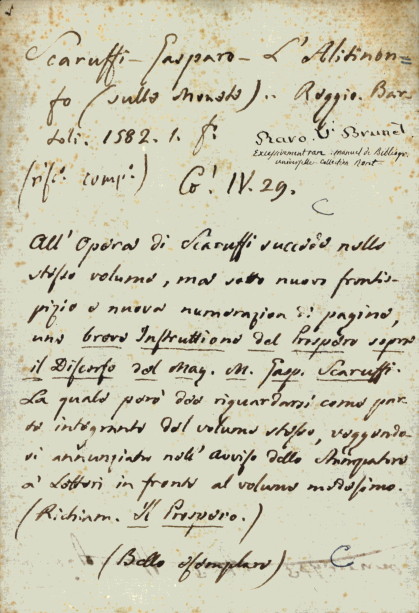 Scaruffi – Gasparo – L'Alitinon=
fo (sulle Monete).. Reggio. Bar
toli. 1582. 1. f.
Raro. V. Brunet
Excessivement rare : manuel de Bibliogr.
universelle - Collection Roret
(rif: comp:) Co! IV. 29.
C
All'Opera di Scaruffi succede nello
stesso volume, ma sotto nuovo frontis-
pizio e nuova numerazion di pagine,
una breve Instruttione del Prospero sopra
il Discorso del Mag. M. Gasp. Scaruffi.
La quale però dee riguardarsi come par
te integrante del volume stesso, veggendo
si annunziata nell'Avviso dello Stampatore
a' Lettori in fronte al volume medesimo.
(Richiam. Il Prospero.)
(Bello esemplare) C